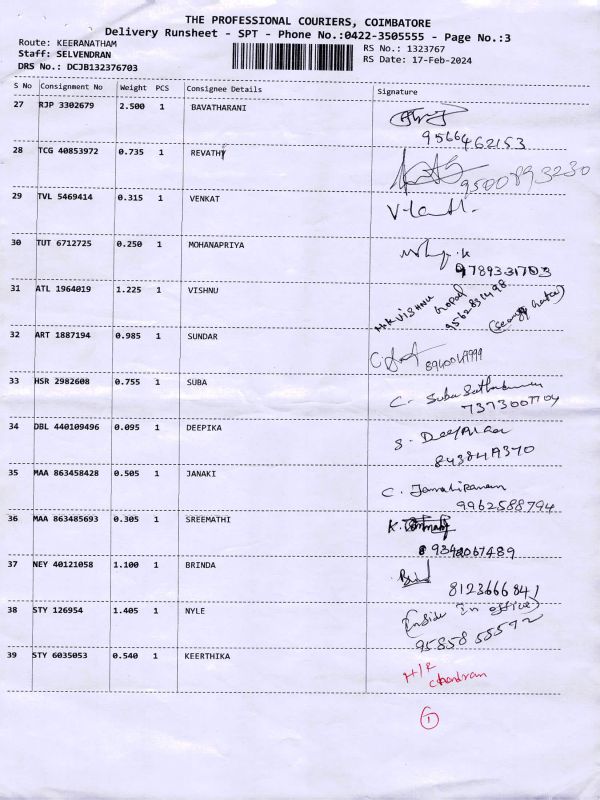 THE PROFESSIONAL COURIERS, COIMBATORE
Delivery Runsheet - SPT - Phone No.:0422-3505555 - Page No.:3
Route: KEERANATHAM RS No.: 1323767
Staff: SELVENDRAN RS Date: 17-Feb-2024
DRS No.: DCJB132376703
S No Consignment No Weight PCS Consignee Details Signature
27 RJP 3302679 2.500 1 BAVATHARANI
9566462153
28 TCG 40853972 0.735 1 REVATHY
9500893230
29 TVL 5469414 0.315 1 VENKAT
30 TUT 6712725 0.250 1 MOHANAPRIYA
9789331703
31 ATL 1964019 1.225 1 VISHNU
VISHNU Gopal
9562831498
32 ART 1887194 0.985 1 SUNDAR
33 HSR 2982608 0.755 1 SUBA
C. Suba
7373007704
34 DBL 440109496 0.095 1 DEEPIKA
S. Deepikaa
35 MAA 863458428 0.505 1 JANAKI
C. Janakiraman
9962588794
36 MAA 863485693 0.305 1 SREEMATHI
K.
37 NEY 40121058 1.100 1 BRINDA
8123666841
38 STY 126954 1.405 1 NYLE
(Inside in office)
9585855572
39 STY 6035053 0.540 1 KEERTHIKA
H/R
chandran
1